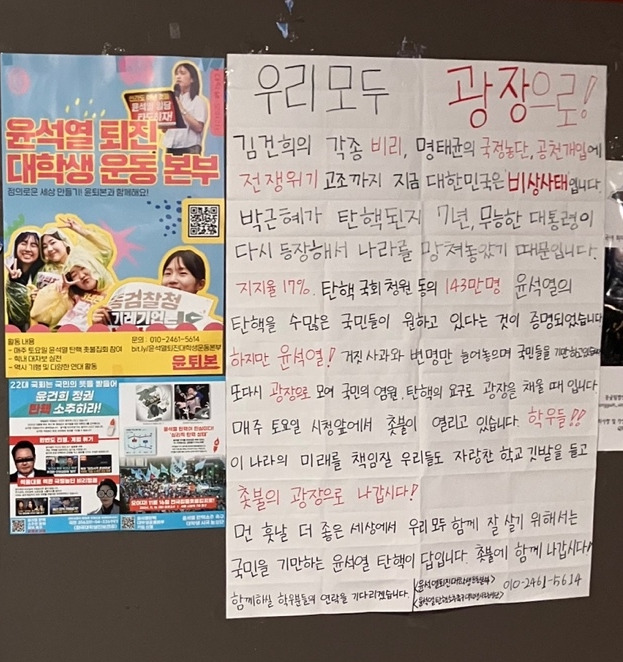 윤석열 퇴진
대학생 운동 본부
정의로운 세상 만들기! 윤퇴본과 함께해요!
활동 내용
- 매주 토요일 윤석열 탄핵 촛불집회 참여
- 학내 대자보 실천
- 역사 기행 및 다양한 연대 활동
문의 : 010-2461-5614
bit.ly/윤석열퇴진대학생운동본부
윤퇴본
22대 국회는 국민의 뜻을 받들어
윤건희 정권
탄핵 소추하라!
우리 모두 광장으로!
김건희의 각종 비리, 명태균의 국정농단, 공천개입에
전쟁위기 고조까지 지금 대한민국은 '비상사태'입니다.
박근혜가 탄핵된지 7년, 무능한 대통령이
다시 등장해서 나라를 망쳐놓았기 때문입니다.
지지율 17%. 탄핵 국회 청원 동의 143만 명 윤석열의
탄핵을 수많은 국민들이 원하고 있다는 것이 증명되었습니다
하지만 윤석열! 거짓 사과와 변명만 늘어놓으며 국민들을 기만하고 있습니다
또다시 광장으로 모여 국민의 염원, 탄핵의 요구로 광장을 채울 때 입니다
매주 토요일 시청앞에서 촛불이 열리고 있습니다. 학우들!!
이 나라의 미래를 책임질 우리들도 자랑찬 학교 깃발을 들고
촛불의 광장으로 나갑시다!
먼 훗날 더 좋은 세상에서 우리 모두 함께 잘 살기 위해서는
국민을 기만하는 윤석열 탄핵이 답입니다. 촛불에 함께 나갑시다!
함께하실 학우분들의 연락을 기다리겠습니다.
<윤석열퇴진대학생운동본부> 010-2461-5614